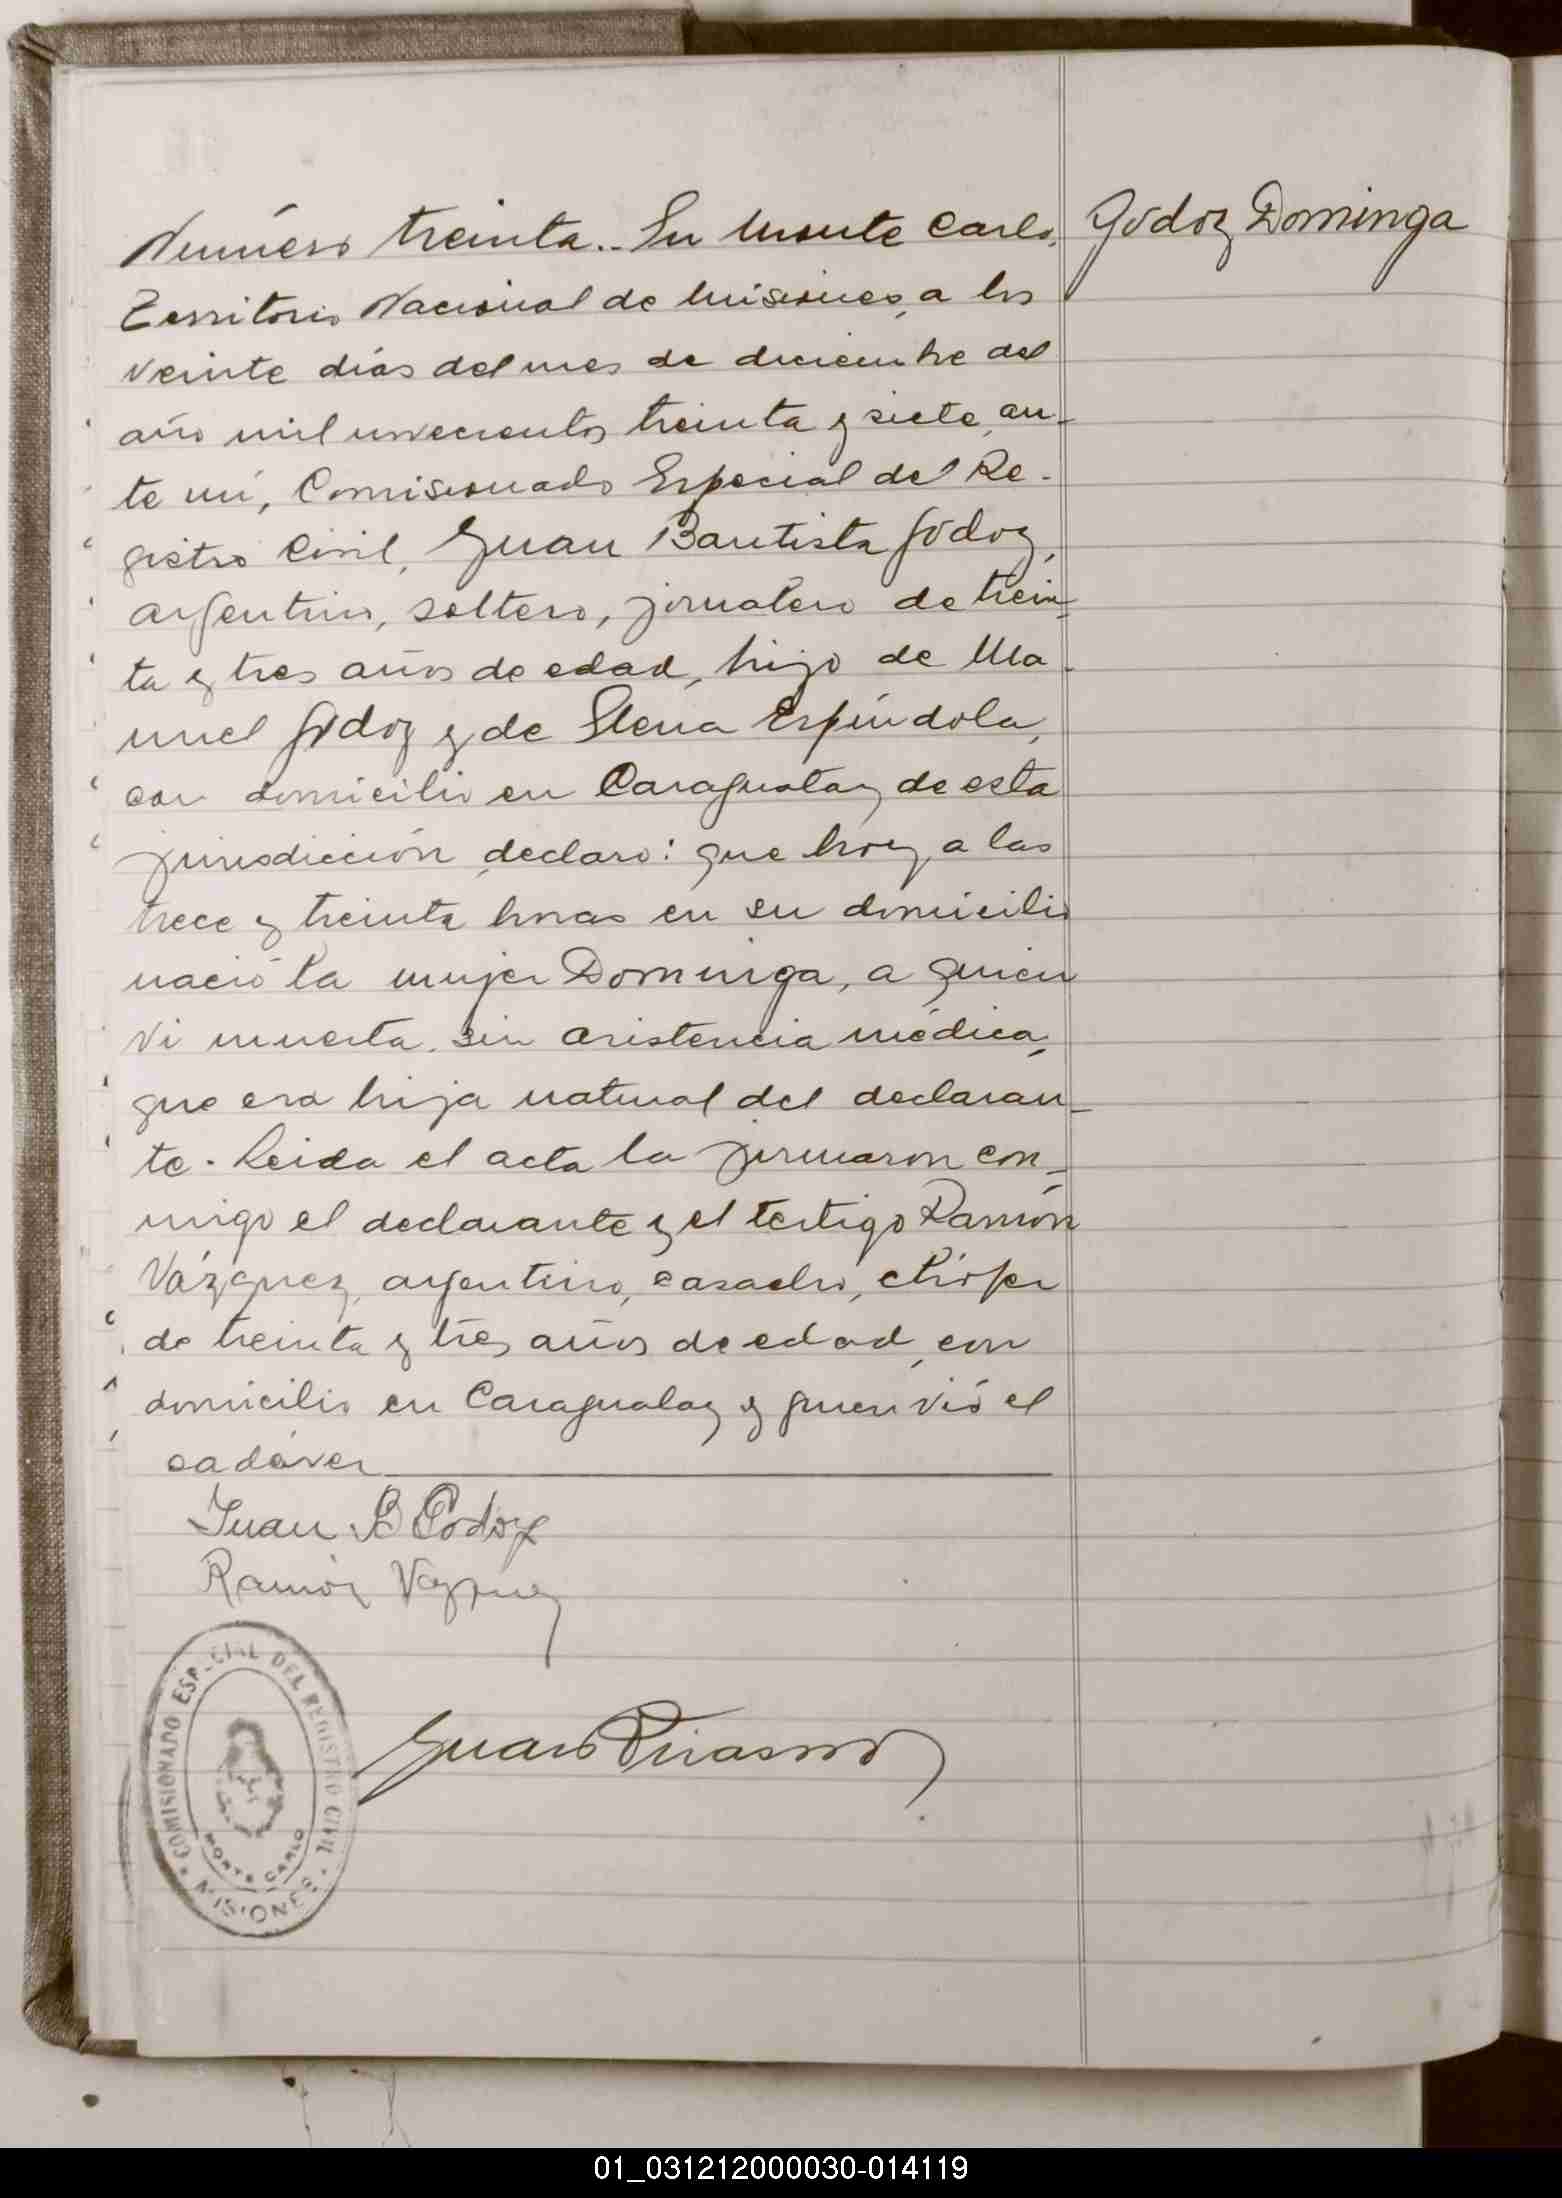 Número treinta.. En Monte Carlo,
Godoy Dominga
Territorio Nacional de Misiones, a los
veinte días del mes de diciembre del
año mil novecientos treinta y siete, an-
te mí, Comisionado Especial del Re-
gistro Civil, Juan Bautista Godoy,
argentino, soltero, jornalero de trein-
ta y tres años de edad, hijo de Ma-
nuel Godoy y de Elena Espíndola,
con domicilio en Caraguatay de esta
jurisdicción, declaro: que hoy a las
trece y treinta horas en su domicilio
nació la mujer Dominga, a quien
vi muerta, sin asistencia médica,
que era hija natural del declaran-
te. Leida el acta la firmaron con-
migo el declarante y el testigo Ramón
Vázquez, argentino, casado, chófer
de treinta y tres años de edad, con
domicilio en Caraguatay y quien vió el
cadáver
Juan B Godoy
Ramón Vazquez
COMISIONADO ESPECIAL DEL REGISTRO CIVIL
MONTE CARLO
MISIONES
Juan
01_031212000030-014119